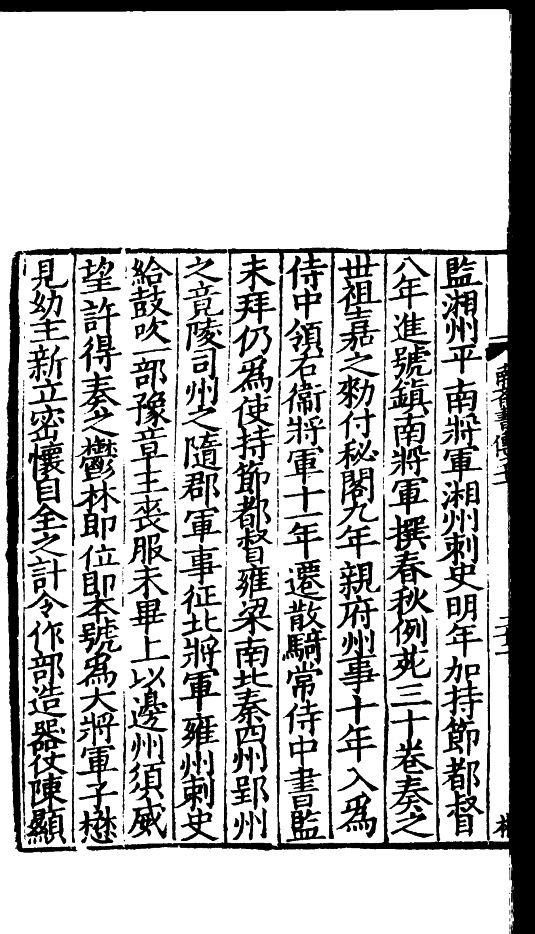 監湘州平南將軍湘州刺史明年加持節都督
八年進號鎮南將軍撰春秋例苑三十卷奏之
世祖嘉之勑付秘閣九年親府州事十年入爲
侍中領右衞將軍十一年遷散騎常侍中書監
未拜仍爲使持節都督雍梁南北秦四州郢州
之竟陵司州之隨郡軍事征北將軍雍州刺史
給鼓吹一部豫章王喪服未畢上以邊州須威
望許得奏之鬱林即位即本號爲大將軍子懋
見幼主新立密懷自全之計令作部造器仗陳顯